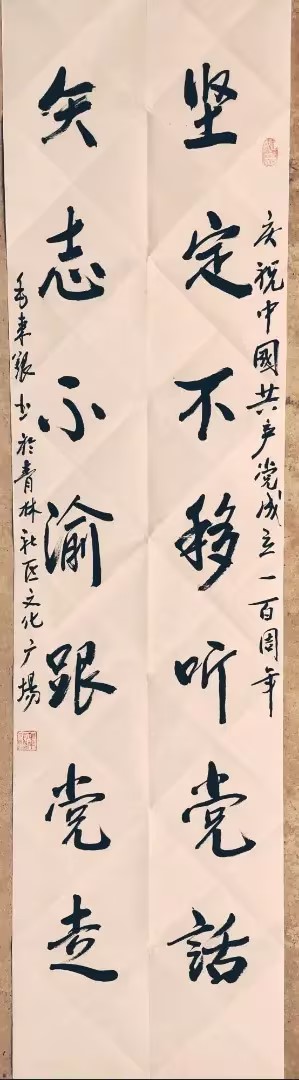 庆祝中國共产党成立一百周年
坚定不移听党話
矢志不渝跟党走
书於青林社区文化广場